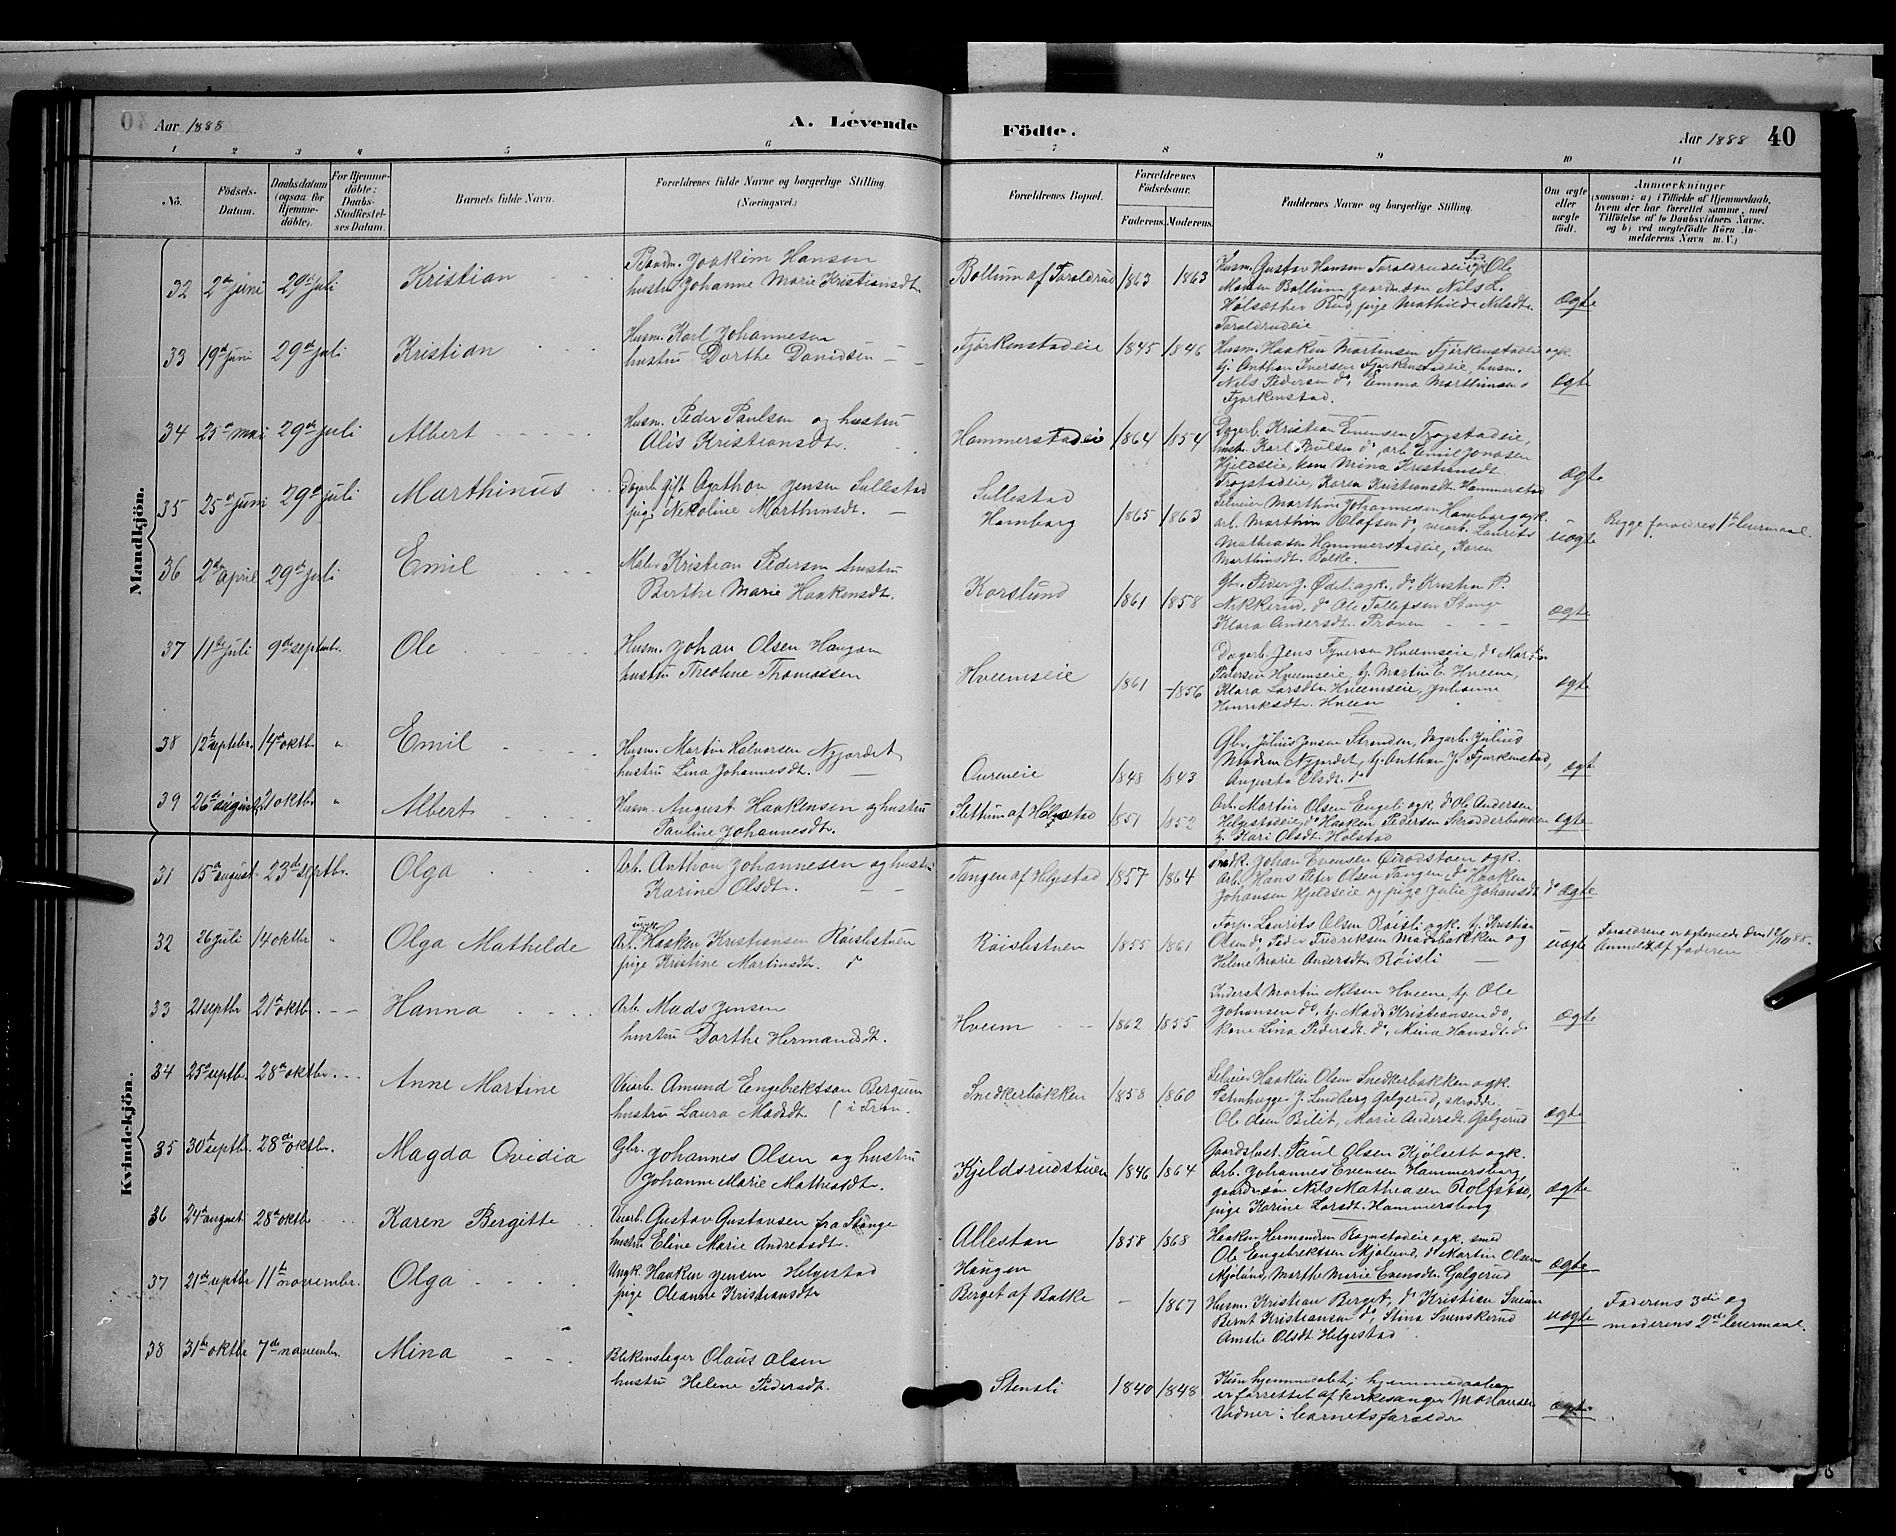 Aar 1888
A. Levende
Födte.
Aar 1888
40
1 2 3 4 5 6 7 8 9 10 11
No.
Födsels-
Datum.
Daabsdatum
(ogsaa for
Hjemme-
döbte).
For Hjemme-
döbte:
Daabs-
Stadfæstel-
ses Datum.
Barnets fulde Navn.
Forældrenes fulde Navne og borgerlige Stilling
(Næringsvei.)
Forældrenes Bopæl.
Forældrenes
Födselsaar.
Faderens. Moderens.
Faddernes Navne og borgerlige Stilling.
Om ægte
eller
uægte
født.
Anmærkninger
(saasom: a) i Tilfælde af Hjemmedaab,
hvem der har forrettet samme, med
Tilföielse af to Daabsvidners Navne,
og b) ved uægtefödte Börn An-
melderens Navn m. V.)
Mandkjön.
32 2den juni 29de juli Kristian
Joakim Hansen
hustru Johanne Marie Kristiansdt.
Bollum af Toraldrud 1863 1863
Husm. Gustav Hansen Toraldrudeie, Ole
Bollum, gaardm.søn Nils L.
Hølsæther Rud, pige Mathilde Nilsdt.
Toraldrudeie
ægte
33 19de juni 29de juli Kristian
Husm. Karl Johannesen
hustru Dorthe Davidsen
Fjørkenstadeie 1845 1846
Husm. Haaken Martinsen Fjørkenstadeie ogk.
tj. Anthon Iversen Fjørkenstadeie, husm.
Nils Pedersen do, Emma Marthinsen
Fjørkenstad.
ægte
34 25de mai 29de juli Albert
Husm. Peder Paulsen og hustru
Alis Kristiansdt.
Hammerstadeie 1864 1854
Dagarb. Kristian Evensen Trogstadeie,
Karl Poulsen do, arb. Emil Jonasen
Hjeldseie, kone Mina Kristiansdt.
Trogstadeie, Karen Kristiansdt. Hammerstad
ægte
35 25de juni 29de juli Marthinus
Dagarb. gift Agathon Jensen Sullestad
pige Nikoline Marthinsdt.
Sullestad
Homborg 1865 1863
Selveier Marthin Johannesen Homborg ogk.
arb. Marthin Olafsen do, veiarb. Laurits
Mathiasen Hammerstadeie, Karen
Marthinsdt. Balke.
uægte
Begge forældres 1ste leiermaal.
36 2den april 29de juli Emil
Maler Kristian Pedersen hustru
Berthe Marie Haakensdt.
Korslund 1861 1858
Gbr. Peder J. Ødeli ogk. do Kristian P.
Nikkerud, do Ole Tollefsen Stange
Klara Andersdt. Prøven
ægte
37 11te juli 9de septembr. Ole
Husm. Johan Olsen Haugom
hustru Theoline Thomassen
Hveemseie 1861 1856
Dagarb. Jens Hveemseie, do Martin
Pedersen Hveemseie, tj. Martin E. Hveem,
Klara Larsdt. Hveemseie, Johanne
Henriksdt. Hveem
ægte
38 12te septebr. 14de oktbr. "
Emil
Husm. Martin Halvorsen Nyjordet
hustru Lina Johannesdt.
Oureneie 1848 1843
Gbr. Julius Jensen Stranden, dagarb. Julius
Madsen Nyjordet, tj. Anthon J. Fjørkenstad,
Augusta Olsdt. do
ægt
39 26de august 21 oktbr "
Albert
Husm. August Haakensen og hustru
Pauline Johannesdt.
Slettum af Helgestad 1851 1852
Arb. Martin Olsen Engeli ogk. do Ole Andersen
Helgestadeie, do Haaken Pedersen Skrædderbakken
tj. Kari Olsdt. Holstad
ægte
Kvindekjön.
31 15de august 23de septbr. Olga
Arb. Anthon Johannesen og hustru
Karine Olsdt.
Tangen af Helgestad 1857 1864
Johan Evensen ogk.
Arb. Hans Peter Olsen Tangen, do Haaken
Johansen Hjeldseie og pige Julie Johansdt. do
ægte
32 26 juli 14 oktbr "
Olga Mathilde
ungk.
Arb. Haaken Kristiansen Røislistuen
pige Kristine Martinsdt. do
Røislistuen 1855 1861
Torp. Laurits Olsen Røisli ogk. tj. Kristian
Olsen do, Peder Fredriksen Madsbakken og
Helene Marie Andersdt. Røisli
uægte
Forældrene ægteviede den 12/10 88.
Anmeldt af faderen
33 21 septbr 21de oktbr.
Hanna
Arb. Mads Jensen
hustru Dorthe Hermandsdt.
Hveem 1862 1855
Inderst Martin Nilsen Hveem, tj. Ole
Johansen do, tj. Mads Kristiansen do,
kone Lina Pedersdt. do, Mina Hansdt. do
ægte
34 25de septbr. 28de oktbr.
Anne Martine
Veiarb. Amund Engebrektsen Bergum
hustru Laura Madsdt. (i Fron.
Snedkerbakken 1858 1860
Selveier Haaken Olsen Snedkerbakken ogk.
Stenhugger J. Lindberg Galgerud, skrædder
Ole Olsen Bilit, Marie Andersdt. Galgerud
ægte
35 30te septbr. 28de oktbr.
Magda Ovidia
Gbr. Johannes Olsen og hustru
Johanne Marie Mathiasdt.
Kjeldsrudstuen 1846 1864
Gaardsbest. Paul Olsen Kjølseth ogk.
Arb. Johannes Evensen Hammersborg,
gaardm.søn Nils Mathiasen Rolfstad,
pige Karine Larsdt. Hammersborg
ægte
36 24de august 28de oktbr
Karen Bergitte
Veiarb. Gustav Gustavsen fra Stange
hustru Eline Marie Andreasdt.
Allestan 1858 1868
Haaken Hermandsen Rognstadeie ogk. smed
Ole Engebrektsen Mjølund, do Martin Olsen
Mjølund, Marthe Marie Evensdt. Galgerud
ægte
37 21de septbr 11te novembr.
Olga
Ungk. Haaken Jensen Helgestad
pige Oleanne Kristiansdt
Haugen
Berget af Balke - 1867
Husm. Kristian Berget, do Kristian Sveum
Bernt Kristiansen do, Stina Svenskerud
Amalie Olsdt. Helgestad
uægte
Faderens 3die og
moderens 2det leiermaal.
38 31te oktbr 7de novembr.
Mina
Blikenslager Olaus Olsen
hustru Helene Pedersdt.
Stensli 1840 1848
Kun hjemmedøbt; hjemmedaaben
er forrettet af kirkesanger
Vidner: barnets forældre
ægte